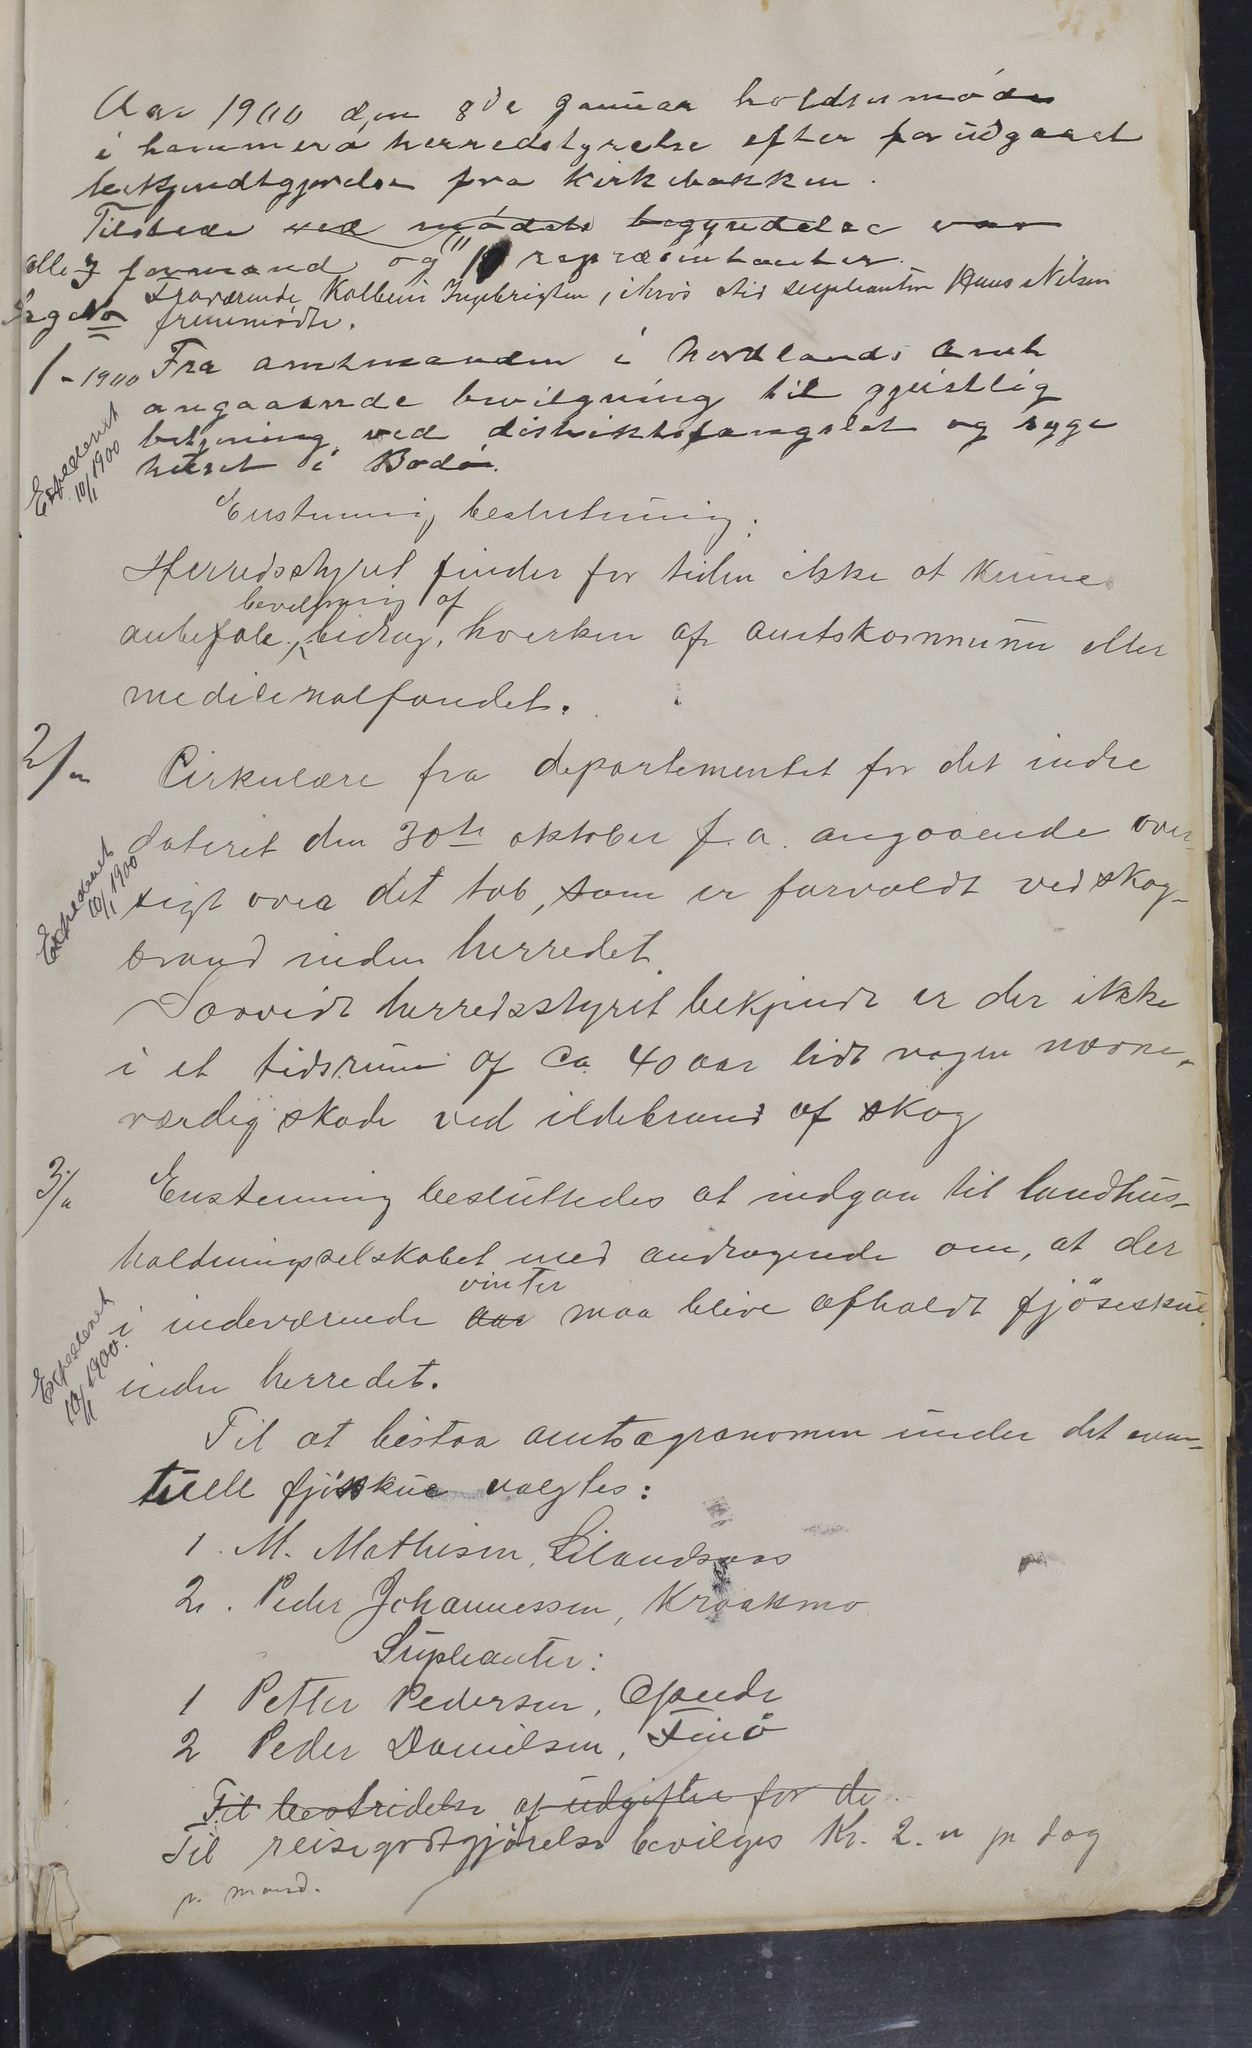 Aar 1900 den 8de Januar holdtes møde
i hammerø herredstyrelse efter forudgaaet
bekjendtgjørelse fra kirkebakken.
Tilstede ved mødets begyndelse var
alle 3 formænd og 11 repræsentanter.
Fraværende Kolbein Ingebrigtsen, i hvis sted suppleanten Hans Nilsen
Sag No fremmødte.
1-1900 Fra amtmanden i Nordlands Amt
angaaende bevilgning til gjeistlig
betjening ved distriktsfængslet og syge
huset i Bodø.
Expederet
10/1 1900
Enstemmig beslutning:
Herredsstyret finder for tiden ikke at kunne
bevilgning af
anbefale, bidrag, hverken af amtskommunen eller
medicinalfondet.
2/" Cirkulære fra departementet for det indre
dateret den 30te oktober f. a. angaaende over-
sigt over det tab, som er forvoldt ved skog-
brand inden herredet.
Expederet
10/1 1900
Saavidt herredsstyret bekjendt er der ikke
i et tidsrum af ca 40 aar lidt nogen nævne-
værdig skade ved ildebrand af skog
3/" Enstemmig besluttedes at indgaa til landhus-
holdningsselskabet med andragende om, at der
vinter
i indeværende aar maa blive afholdt fjøseskue
inden herredet.
Expederet
10/1 1900.
Til at bistaa amtsagronomen under det even-
tuelle fjøsskue valgtes:
1. M. Mathisen, Lilandsaas
2. Peder Johannessen, Kraakmo
Supleanter:
1 Petter Pedersen, Øpende
2 Peder Danielsen, Finø
Til bestridelse af udgifter for de
Til reisegodtgjørelse bevilges Kr. 2." pr dag
pr. mand.